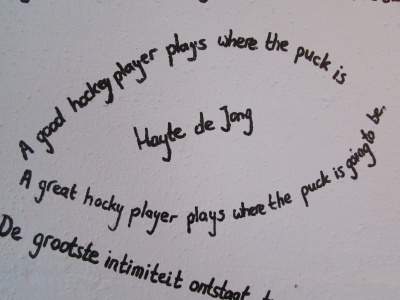 A good hockey player plays where the puck is
Hayte de Jong
A great hocky player plays where the puck is going to be.
De grootste intimiteit ontstaat